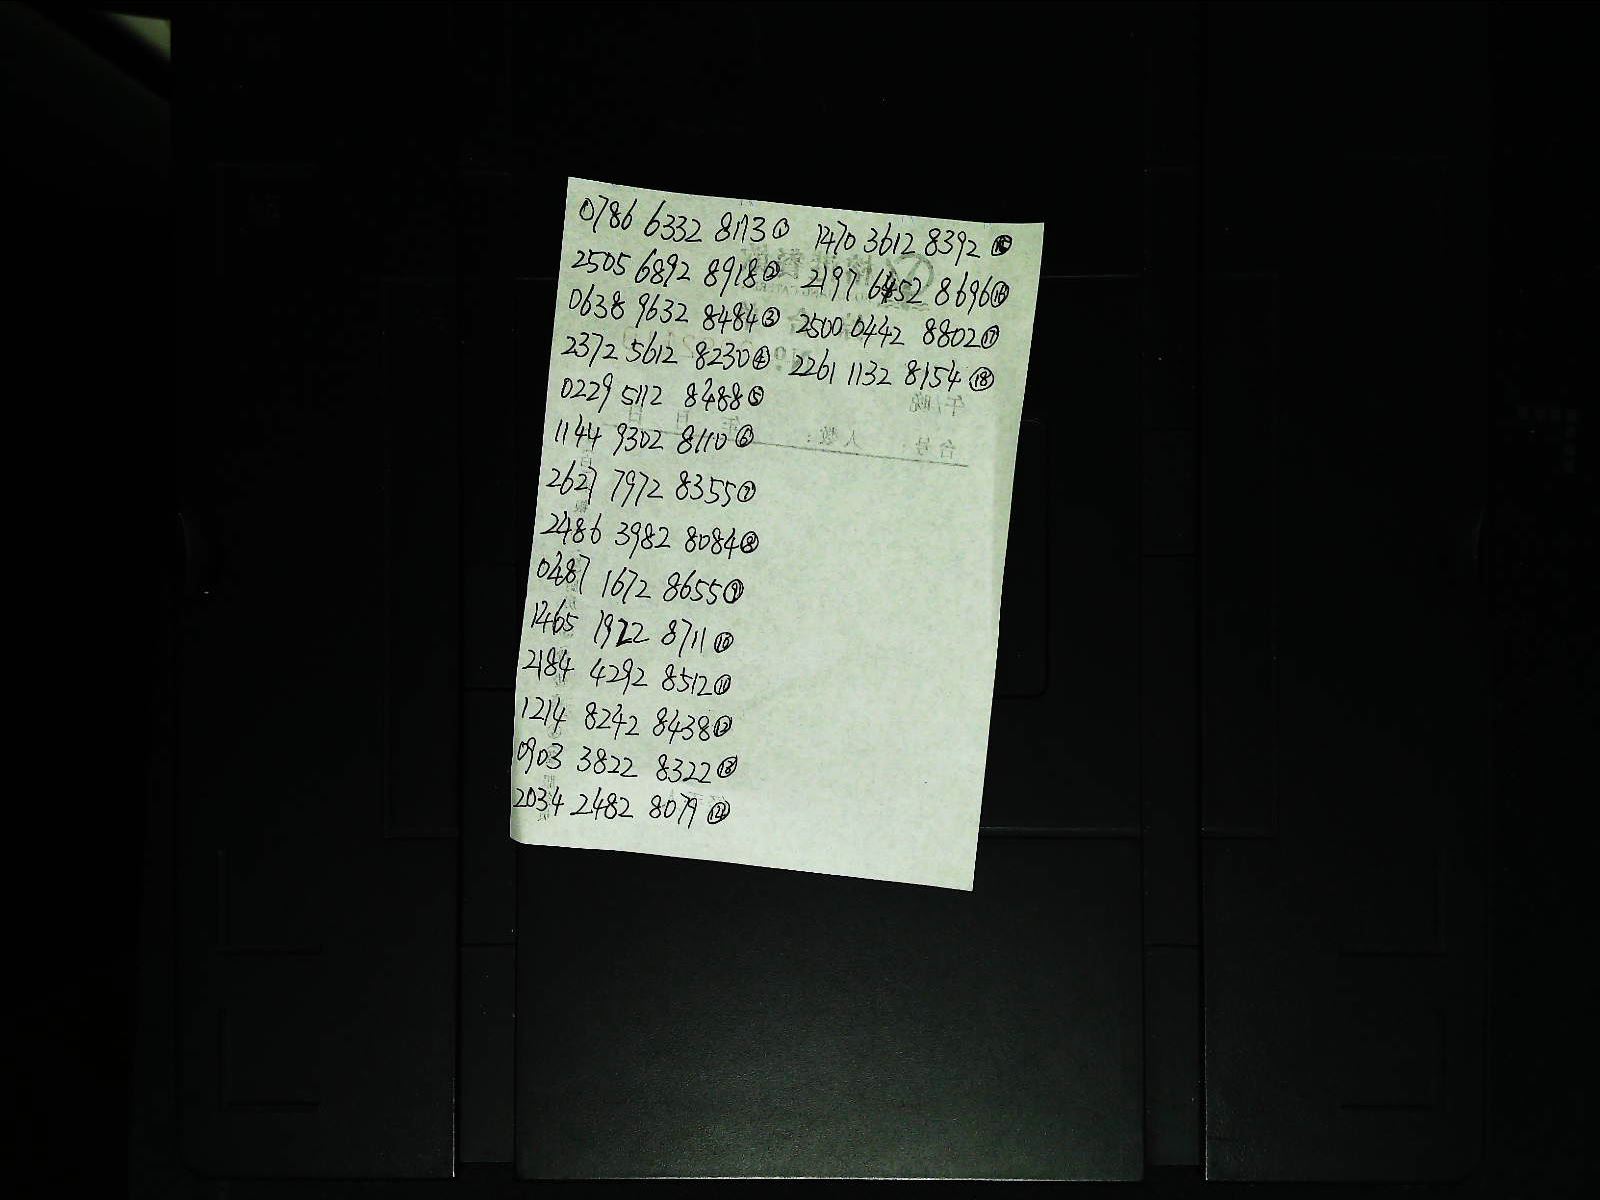 0786 6332 8173 ①
2505 6892 8918 ②
0638 9632 8484 ③
2372 5612 8230 ④
0229 5112 8488 ⑤
1144 9302 8110 ⑥
2627 7972 8355 ⑦
2486 3982 8084 ⑧
0487 1672 8655 ⑨
1465 1922 8711 ⑩
2184 4292 8512 ⑪
1214 8242 8438 ⑫
0903 3822 8322 ⑬
2034 2482 8079 ⑭
1470 3612 8392 ⑮
2197 6452 8696 ⑯
2500 0442 8802 ⑰
2261 1132 8154 ⑱
午/晚
台号: 人数: 年 月 日